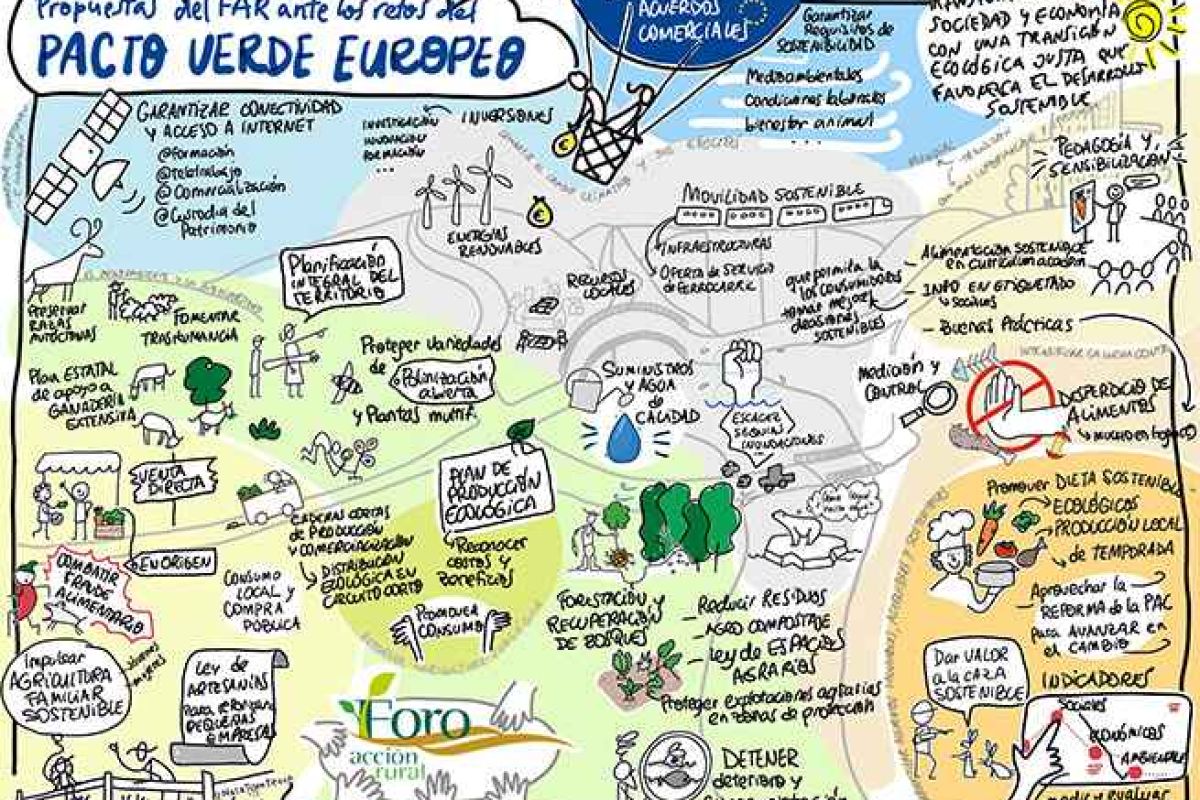 Propuestas del FAR ante los retos del
PACTO VERDE EUROPEO
ACUERDOS
COMERCIALES
Garantizar
Requisitos de
SOSTENIBILIDAD
Medioambientales
Condiciones laborales
bienestar animal
SOCIEDAD Y ECONOMÍA
CON UNA TRANSICIÓN
ECOLÓGICA JUSTA QUE
FAVOREZCA EL DESARROLLO
SOSTENIBLE
GARANTIZAR CONECTIVIDAD
Y ACCESO A INTERNET
@formación
@teletrabajo
@Comercialización
@Custodia del
Patrimonio
INVESTIGACIÓN
INNOVACIÓN
FORMACIÓN
...
INVERSIONES
ENERGÍAS
RENOVABLES
MOVILIDAD SOSTENIBLE
INFRAESTRUCTURAS
Oferta de Servicio
de FERROCARRIL
RECURSOS
LOCALES
PEDAGOGÍA Y
SENSIBILIZACIÓN
- Alimentación SOSTENIBLE
- INFO EN ETIQUETADO
sociales
- Buenas PRÁCTICAS
que permita a
los consumidores
tomar mejores
decisiones
SOSTENIBLES
Planificación
INTEGRAL DEL
TERRITORIO
Preservar
RAZAS
AUTÓCTONAS
FOMENTAR
TRASHUMANCIA
Plan ESTATAL
de apoyo a
GANADERÍA
EXTENSIVA
Proteger variedades
de
Polinización
abierta
y Plantas
SUMINISTROS
Y AGUA
de
CALIDAD
ESCASEZ
SEQUÍA
INUNDACIONES
Medición y
CONTROL
INTENSIFICAR LA LUCHA CONTRA
DESPERDICIO DE
ALIMENTOS
VENTA
DIRECTA
EN ORIGEN
COMBATIR
FRAUDE
ALIMENTARIO
CADENAS CORTAS
de PRODUCCIÓN
Y COMERCIALIZACIÓN
DISTRIBUCIÓN
ECOLÓGICA EN
CIRCUITO CORTO
CONSUMO
LOCAL y
COMPRA
PÚBLICA
PLAN DE
PRODUCCIÓN
ECOLÓGICA
Reconocer
costos y
Beneficios
Promover
CONSUMO
FORESTACIÓN Y
RECUPERACIÓN
DE BOSQUES
- Reducir RESIDUOS
- AGRO COMPOSTAJE
- Ley de ESPACIOS
AGRARIOS
Proteger explotaciones agrarias
en zonas de protección
Promover DIETA SOSTENIBLE
ECOLÓGICOS
PRODUCCIÓN LOCAL
de TEMPORADA
Aprovechar la
REFORMA de la PAC
para AVANZAR en
el CAMBIO
Impulsar
AGRICULTURA
FAMILIAR
SOSTENIBLE
jóvenes
mujeres
LEY DE
ARTESANÍAS
Para
PEQUEÑAS
EMPRESAS
Foro
acción
rural
Dar VALOR
a la CAZA
SOSTENIBLE
INDICADORES
Sociales
ECONÓMICOS
AMBIENTALES
DETENER
deterioro y